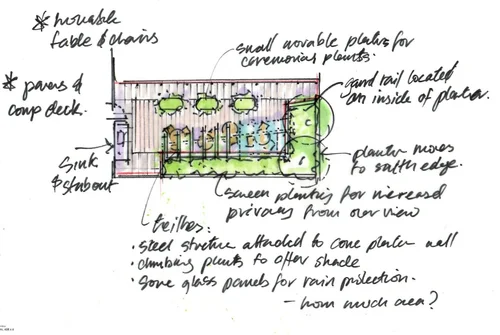 * movable
table & chairs
* pavers &
comp deck.
sink
& stubout
small movable planters for
ceremonial plants.
guard rail located
on inside of planter.
planter moves
to south edge.
screen planting for increased
privacy from over view
trellis:
· steel structure attached to conc planter wall
· climbing plants to offer shade
· some glass panels for rain protection.
- how much area?